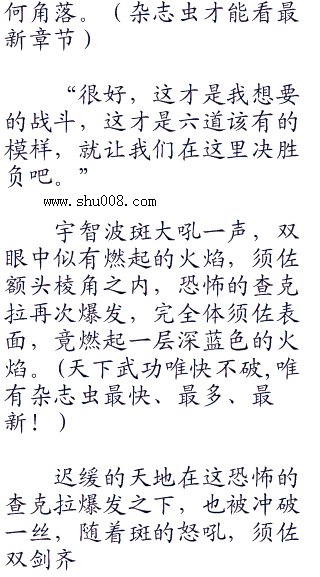 何角落。（杂志虫才能看最
新章节）
“很好，这才是我想要
的战斗，这才是六道该有的
模样，就让我们在这里决胜
负吧。”
www.shu008.com
宇智波斑大吼一声，双
眼中似有燃起的火焰，须佐
额头棱角之内，恐怖的查克
拉再次爆发，完全体须佐表
面，竟燃起一层深蓝色的火
焰。(天下武功唯快不破,唯
有杂志虫最快、最多、最
新！)
迟缓的天地在这恐怖的
查克拉爆发之下，也被冲破
一丝，随着斑的怒吼，须佐
双剑齐